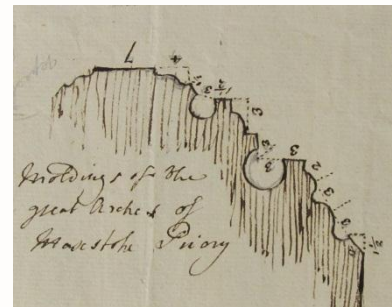 7
4
3
1½
3
3
3
2
3
3
Moldings of the
great Arches of
Maxstoke Priory